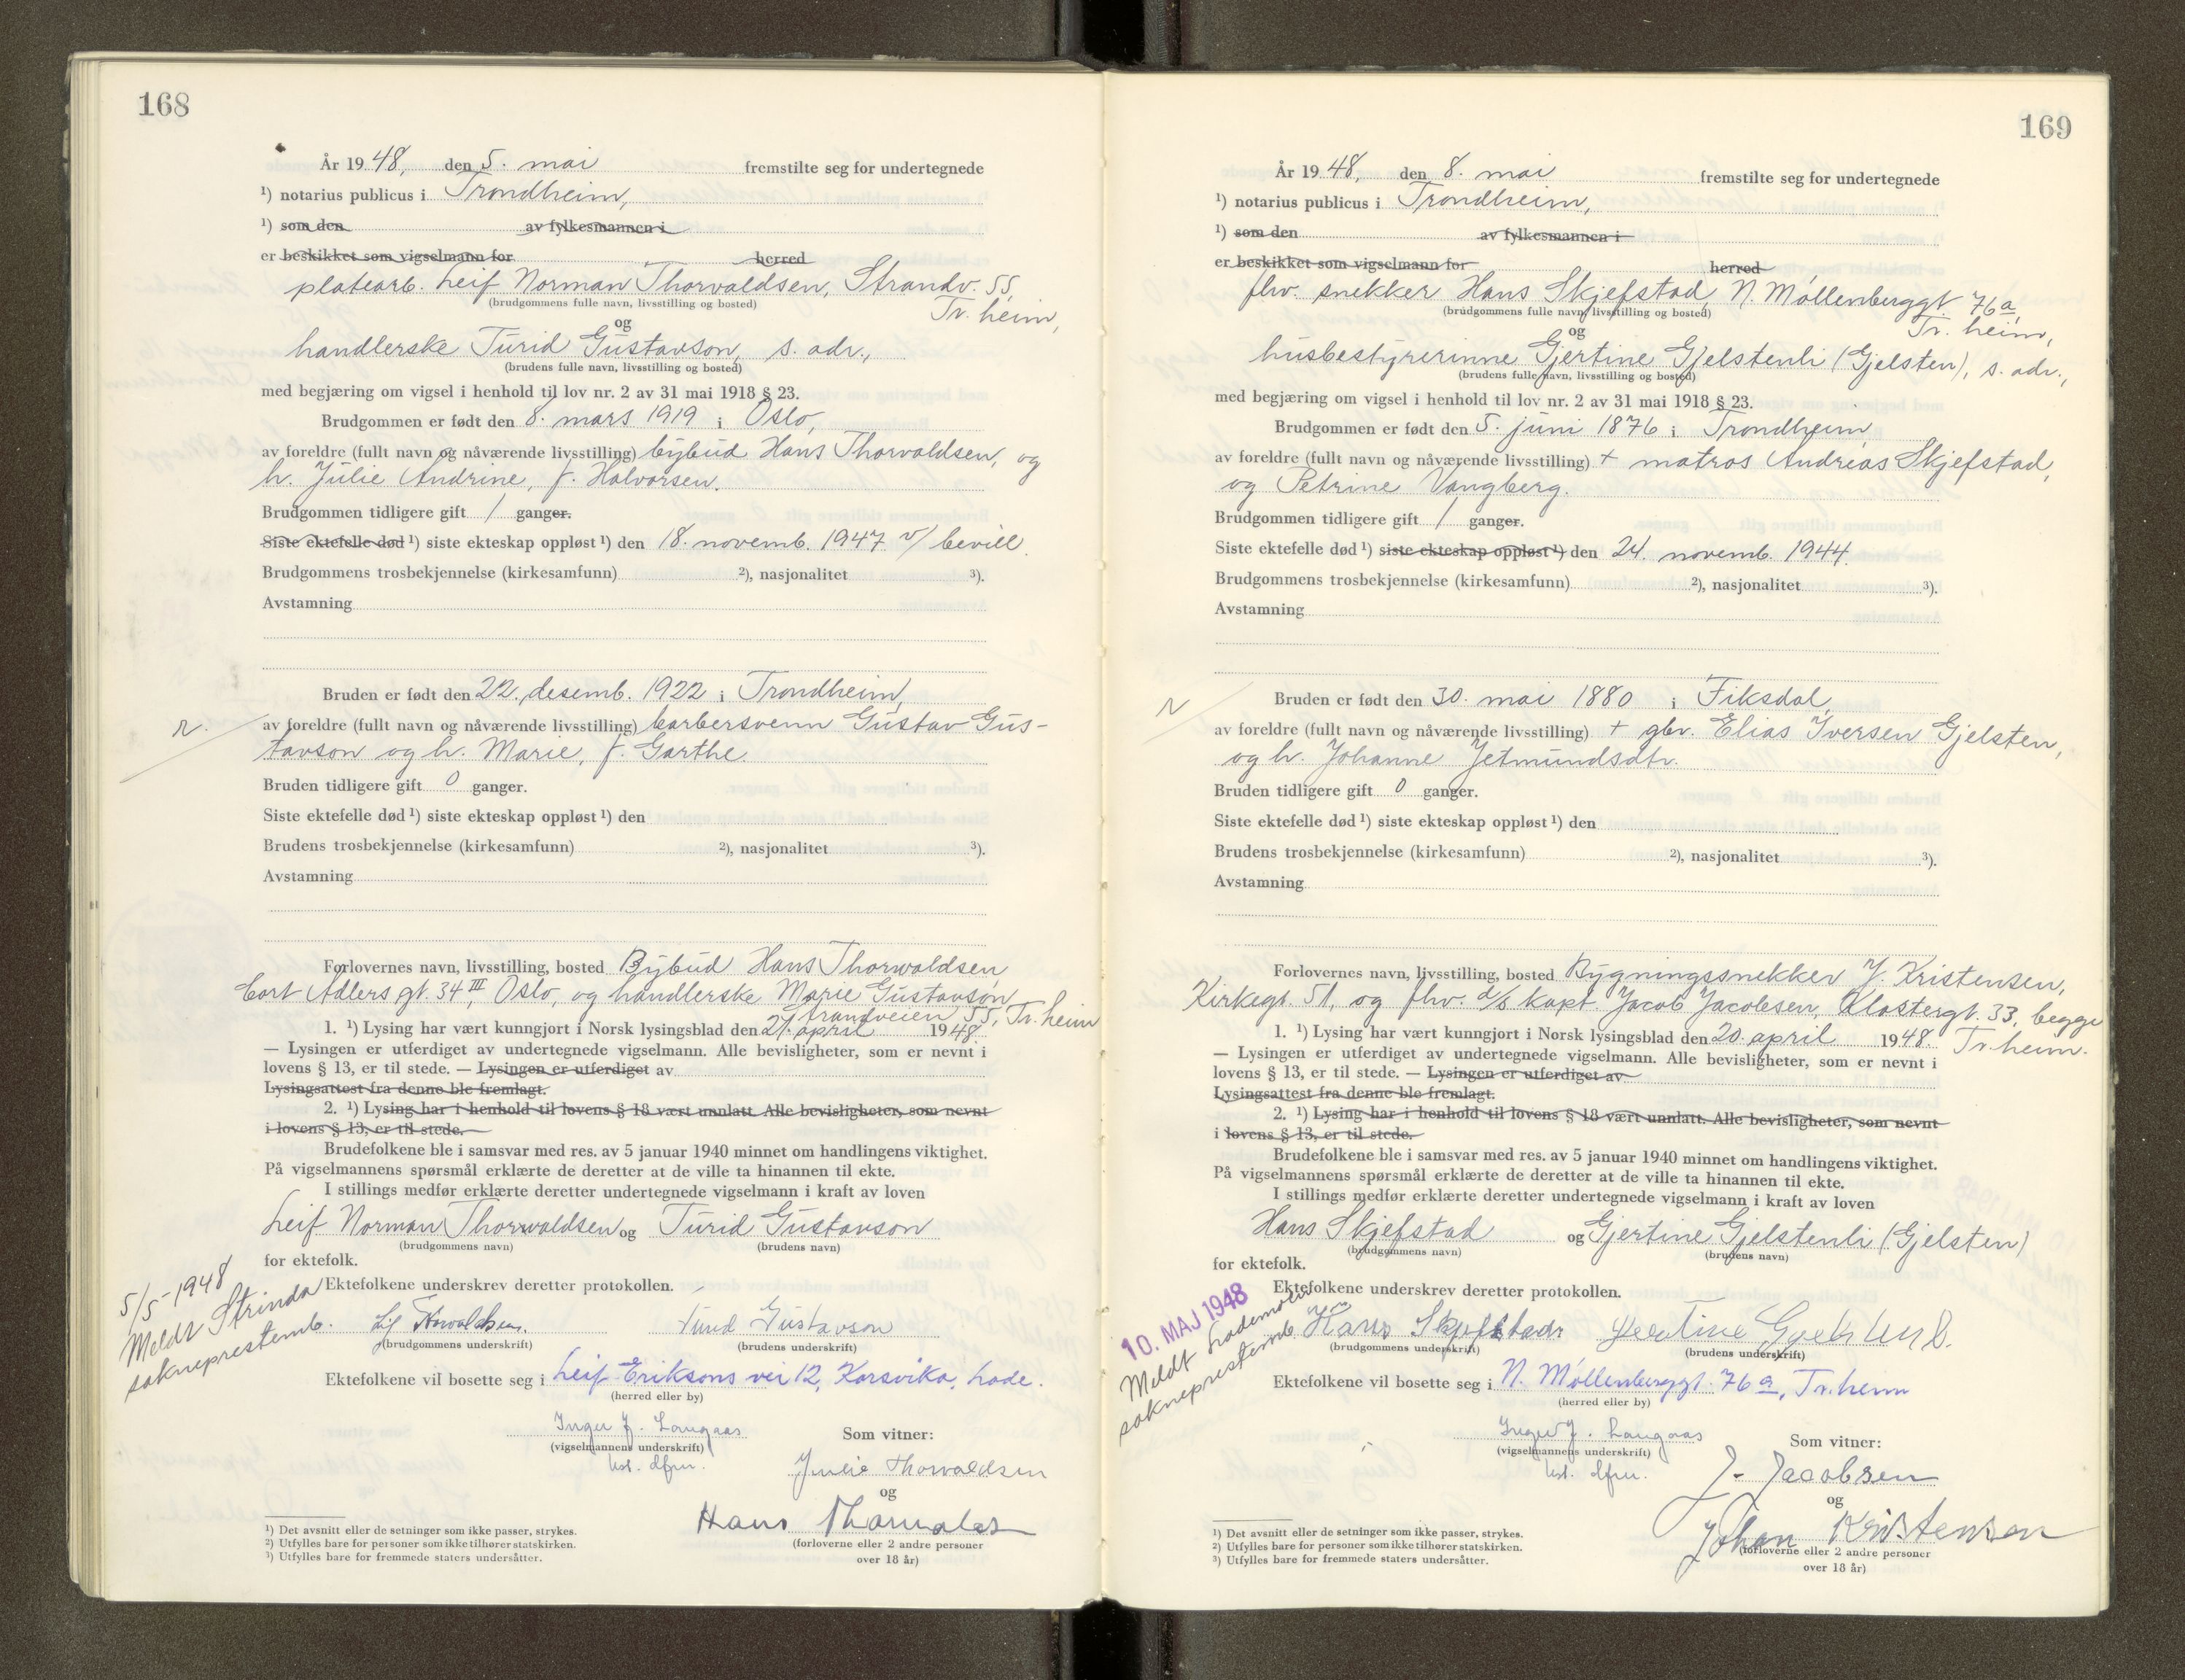 168
År 19 48, den 5. mai fremstilte seg for undertegnede
¹) notarius publicus i Trondheim,
¹) som den av fylkesmannen i
er beskikket som vigselmann for herred
platearb. Leif Norman Thorvaldsen, Strandv. 55,
(brudgommens fulle navn, livsstilling og bosted)
Tr. heim,
og
handlerske Turid Gustavson, s. adr.,
(brudens fulle navn, livsstilling og bosted)
med begjæring om vigsel i henhold til lov nr. 2 av 31 mai 1918 § 23.
Brudgommen er født den 8. mars 1919 i Oslo,
av foreldre (fullt navn og nåværende livsstilling) bybud Hans Thorvaldsen, og
h. Julie Andrine, f. Halvorsen.
Brudgommen tidligere gift 1 ganger.
Siste ektefelle død ¹) siste ekteskap oppløst ¹) den 18. novemb. 1947 v/ bevill.
Brudgommens trosbekjennelse (kirkesamfunn) ²), nasjonalitet ³).
Avstamning
Bruden er født den 22. desemb. 1922 i Trondheim,
av foreldre (fullt navn og nåværende livsstilling) barbersvenn Gustav Gus-
tavson og h. Marie, f. Garthe.
Bruden tidligere gift 0 ganger.
Siste ektefelle død ¹) siste ekteskap oppløst ¹) den
Brudens trosbekjennelse (kirkesamfunn) ²), nasjonalitet ³).
Avstamning
Forlovernes navn, livsstilling, bosted Bybud Hans Thorwaldsen
Cort Adlers gt. 34 III, Oslo, og handlerske Marie Gustavson,
Strandveien 55, Tr. heim
1. ¹) Lysing har vært kunngjort i Norsk lysingsblad den 21. april 1948.
— Lysingen er utferdiget av undertegnede vigselmann. Alle bevisligheter, som er nevnt i
lovens § 13, er til stede. — Lysingen er utferdiget av
Lysingsattest fra denne ble fremlagt.
2. ¹) Lysing har i henhold til lovens § 18 vært unnlatt Alle bevisligheter, som nevnt
i lovens § 13, er til stede.
Brudefolkene ble i samsvar med res. av 5 januar 1940 minnet om handlingens viktighet.
På vigselmannens spørsmål erklærte de deretter at de ville ta hinannen til ekte.
I stillings medfør erklærte deretter undertegnede vigselmann i kraft av loven
Leif Norman Thorvaldsen og Turid Gustavson
(brudgommens navn) (brudens navn)
for ektefolk.
5/5-1948
Meldt Strinda
sokneprestemb.
Ektefolkene underskrev deretter protokollen.
Leif Thorvaldsen. Turid Gustavson
(brudgommens underskrift) (brudens underskrift)
Ektefolkene vil bosette seg i Leif Eriksons vei 12, Korsvika, Lade.
(herred eller by)
Inger J. Langaas
(vigselmannens underskrift)
Som vitner:
Julie Thorvaldsen
og
Hans Thorvaldsen
(forloverne eller 2 andre personer
over 18 år)
¹) Det avsnitt eller de setninger som ikke passer, strykes.
²) Utfylles bare for personer som ikke tilhører statskirken.
³) Utfylles bare for fremmede staters undersåtter.
169
År 19 48, den 8. mai fremstilte seg for undertegnede
¹) notarius publicus i Trondheim,
¹) som den av fylkesmannen i
er beskikket som vigselmann for herred
fhv. snekker Hans Skjefstad, N. Møllenberggt. 76a,
(brudgommens fulle navn, livsstilling og bosted)
Tr. heim,
og
husbestyrerinne Gjertine Gjelstenli (Gjelsten), s. adr.,
(brudens fulle navn, livsstilling og bosted)
med begjæring om vigsel i henhold til lov nr. 2 av 31 mai 1918 § 23.
Brudgommen er født den 5. juni 1876 i Trondheim
av foreldre (fullt navn og nåværende livsstilling) + matros Andreas Skjefstad,
og Petrine Vangberg.
Brudgommen tidligere gift 1 ganger.
Siste ektefelle død ¹) siste ekteskap oppløst ¹) den 24. novemb. 1944.
Brudgommens trosbekjennelse (kirkesamfunn) ²), nasjonalitet ³).
Avstamning
Bruden er født den 30. mai 1880 i Fiksdal,
av foreldre (fullt navn og nåværende livsstilling) + gbr. Elias Iversen Gjelsten,
og h. Johanne Jetmundsdtr.
Bruden tidligere gift 0 ganger.
Siste ektefelle død ¹) siste ekteskap oppløst ¹) den
Brudens trosbekjennelse (kirkesamfunn) ²), nasjonalitet ³).
Avstamning
Forlovernes navn, livsstilling, bosted Bygningssnekker J. Kristensen,
Kirkegt. 51, og fhv. d/s kapt. Jacob Jacobsen, Klostergt. 33, begge
Tr. heim.
1. ¹) Lysing har vært kunngjort i Norsk lysingsblad den 20. april 1948.
— Lysingen er utferdiget av undertegnede vigselmann. Alle bevisligheter, som er nevnt i
lovens § 13, er til stede. — Lysingen er utferdiget av
Lysingsattest fra denne ble fremlagt.
2. ¹) Lysing har i henhold til lovens § 18 vært unnlatt. Alle bevisligheter, som nevnt
i lovens § 13, er til stede.
Brudefolkene ble i samsvar med res. av 5 januar 1940 minnet om handlingens viktighet.
På vigselmannens spørsmål erklærte de deretter at de ville ta hinannen til ekte.
I stillings medfør erklærte deretter undertegnede vigselmann i kraft av loven
Hans Skjefstad og Gjertine Gjelstenli (Gjelsten)
(brudgommens navn) (brudens navn)
for ektefolk.
10. MAJ 1948
Meldt Lademoen
sokneprestemb.
Ektefolkene underskrev deretter protokollen.
Hans Skjefstad Gjertine Gjelstenli.
(brudgommens underskrift) (brudens underskrift)
Ektefolkene vil bosette seg i N. Møllenberggt. 76a, Tr. heim
(herred eller by)
Inger J. Langaas
(vigselmannens underskrift)
Som vitner:
J. Jacobsen
og
Johan Kristensen
(forloverne eller 2 andre personer
over 18 år)
¹) Det avsnitt eller de setninger som ikke passer, strykes.
²) Utfylles bare for personer som ikke tilhører statskirken.
³) Utfylles bare for fremmede staters undersåtter.